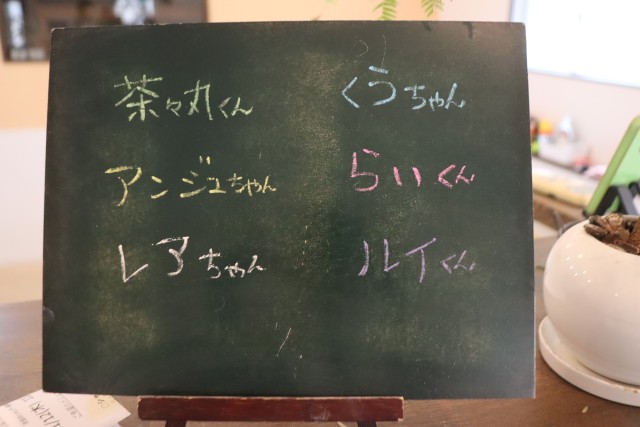 茶々丸くん
アンジュちゃん
レアちゃん
くうちゃん
らいくん
ルイくん